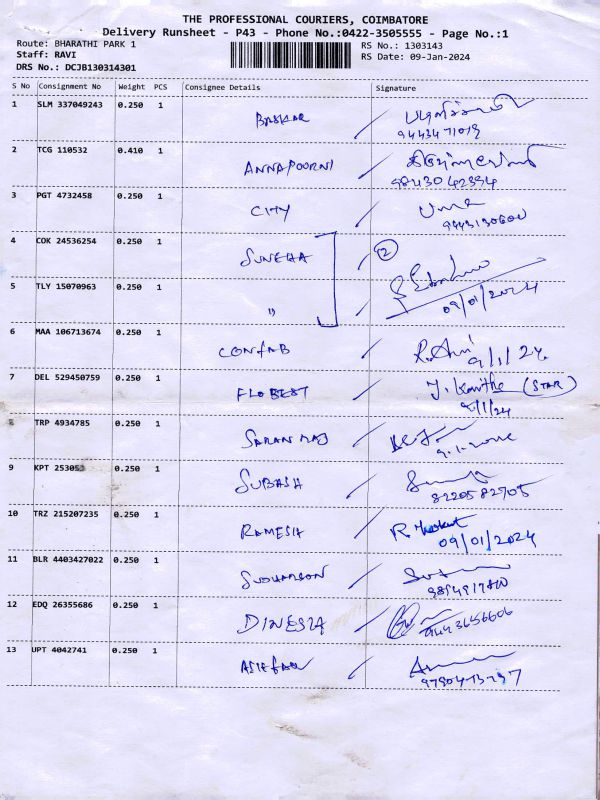 THE PROFESSIONAL COURIERS, COIMBATORE
Delivery Runsheet - P43 - Phone No.:0422-3505555 - Page No.:1
Route: BHARATHI PARK 1 RS No.: 1303143
Staff: RAVI RS Date: 09-Jan-2024
DRS No.: DCJB130314301
S No Consignment No Weight PCS Consignee Details Signature
1 SLM 337049243 0.250 1 BASKAR
9443471019
2 TCG 110532 0.410 1 ANNAPOORNI
9843042334
3 PGT 4732458 0.250 1 CITY
4 COK 24536254 0.250 1 SUNEHA 2
5 TLY 15070963 0.250 1 "
09/01/2024
6 MAA 106713674 0.250 1 CONFAB
9/1/24.
7 DEL 529450759 0.250 1 FLOBEST J. Kavitha (STAR)
9/1/24
8 TRP 4934785 0.250 1 SARAN RAJ
9.1.2024
9 KPT 253053 0.250 1 SUBASH
8220582705
10 TRZ 215207235 0.250 1 RAMESH
09/01/2024
11 BLR 4403427022 0.250 1
12 EDQ 26355686 0.250 1 DINESH
9443656606
13 UPT 4042741 0.250 1